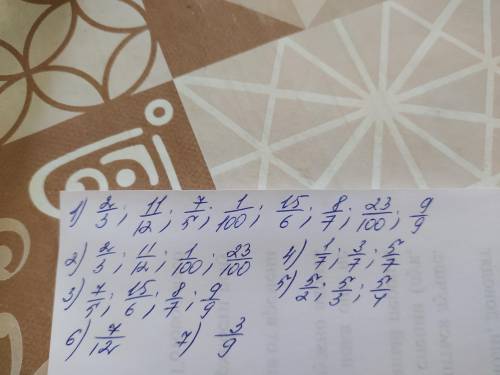 1) 2/3; 11/12; 7/5; 1/100; 15/6; 8/7; 23/100; 9/9
2) 2/3; 11/12; 1/100; 23/100
3) 7/5; 15/6; 8/7; 9/9
4) 1/7; 3/7; 5/7
5) 5/2; 5/3; 5/4
6) 7/12
7) 3/9